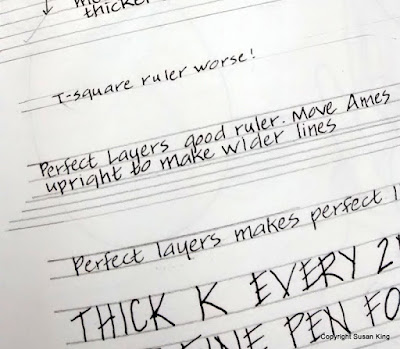 thicker
T-square ruler worse!
Perfect Layers good ruler. Move Ames
upright to make wider lines
Perfect layers makes perfect
THICK K EVERY
PEN
Copyright Susan King